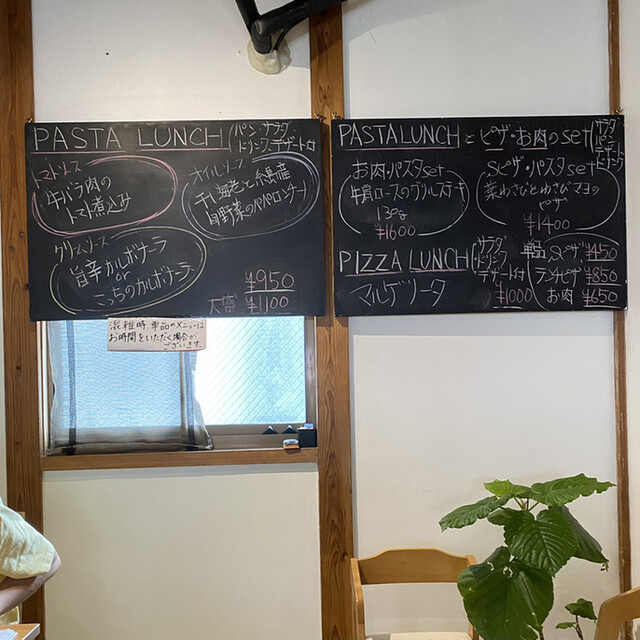 PASTA LUNCH (パン・サラダ
ドリンク・デザート付
トマトソース
牛バラ肉の
トマト煮込み
オイルソース
干し海老と糸島産
旬野菜のペペロンチーノ
クリームソース
旨辛カルボナーラ
or
こっちのカルボナーラ
¥950
大盛 ¥1,100
混雑時 単品のメニューは
お時間をいただく場合が
ございます。
PASTA LUNCH とピザ・お肉のset (サラダ
ドリンク
お肉・パスタset
牛肩ロースのグリルステーキ
130g
¥1600
Sピザ・パスタset
葉わさびとわさびマヨの
ピザ
¥1400
PIZZA LUNCH (サラダ
ドリンク
デザート付
マルゲリータ
¥1000
単品 Sピザ ¥450
ランチピザ ¥850
お肉 ¥650